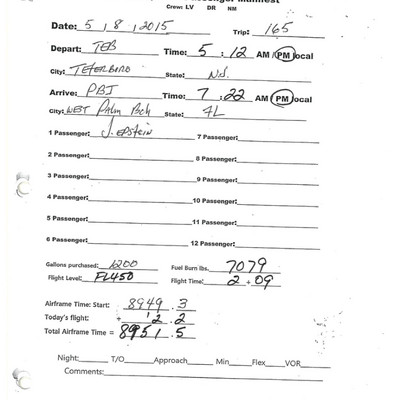 Passenger Manifest
Crew: LV DR NM
Date: 5 / 8 / 2015 Trip: 165
Depart: TEB Time: 5 : 12 AM / PM local
City: TETERBORO State: N.J.
Arrive: PBI Time: 7 : 22 AM / PM local
City: WEST Palm Bch State: FL
1 Passenger: J. EPSTEIN 7 Passenger:
2 Passenger: 8 Passenger:
3 Passenger: 9 Passenger:
4 Passenger: 10 Passenger:
5 Passenger: 11 Passenger:
6 Passenger: 12 Passenger:
Gallons purchased: 1200 Fuel Burn lbs. 7079
Flight Level: FL450 Flight Time: 2 + 09
Airframe Time: Start: 8949 . 3
Today's flight: + 2 . 2
Total Airframe Time = 8951 . 5
Night: T/O Approach Min Flex VOR
Comments: